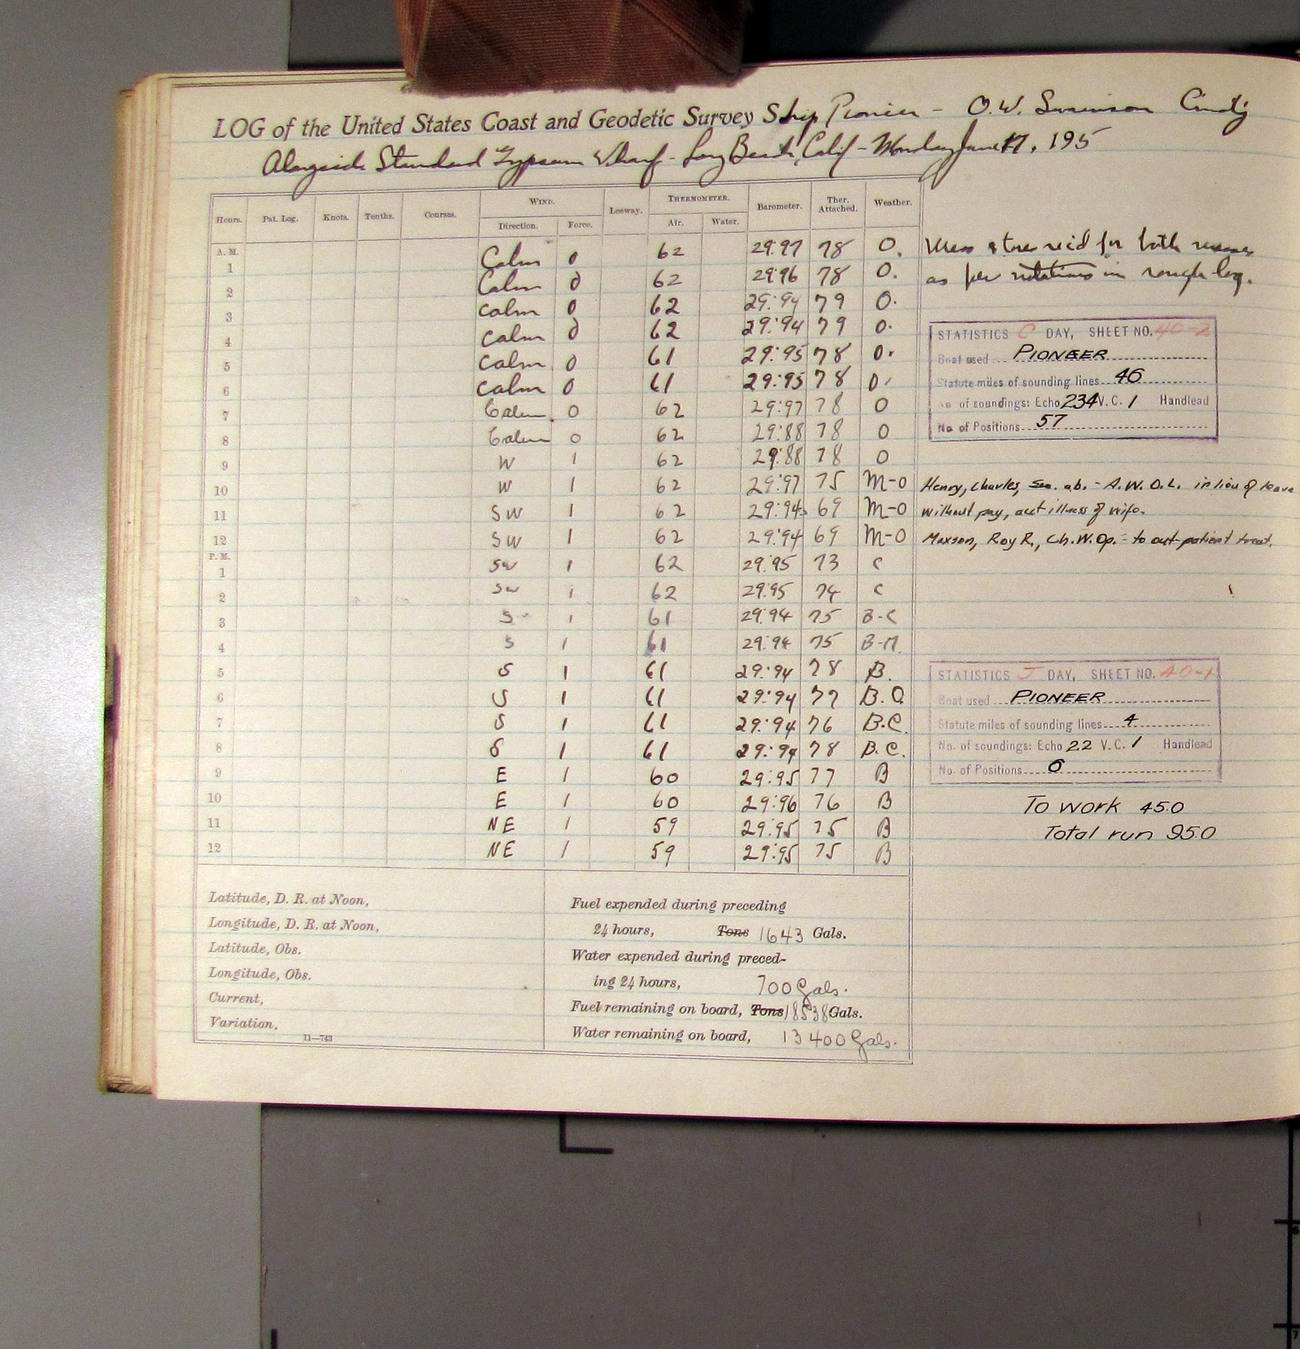 LOG of the United States Coast and Geodetic Survey Ship Pioneer - O.W. Swainson Cmdg
Alongside Standard Gypsum Wharf - Long Beach, Calif - Monday June 17, 195
Hours. Pat. Log. Knots. Tenths. Courses. WIND. Leeway. THERMOMETER. Barometer. Ther. Attached. Weather.
Direction. Force. Air. Water.
A. M.
1 Calm 0 62 29.97 78 O. Mess stores rec'd for both messes
2 Calm 0 62 29.96 78 O. as per notations in rough log.
3 Calm 0 62 29.94 79 O.
4 Calm 0 62 29.94 79 O.
5 Calm 0 61 29.95 78 O.
6 Calm 0 61 29.95 78 O.
7 Calm 0 62 29.97 78 O
8 Calm 0 62 29.88 78 O
9 W 1 62 29.88 78 O
10 W 1 62 29.97 75 M-O
11 SW 1 62 29.94 69 M-O
12 SW 1 62 29.94 69 M-O
P. M.
1 SW 1 62 29.95 73 C
2 SW 1 62 29.95 74 C
3 S 1 61 29.94 75 B-C
4 S 1 61 29.94 75 B-M
5 S 1 61 29.94 78 B.
6 S 1 61 29.94 77 B.C.
7 S 1 61 29.94 76 B.C.
8 S 1 61 29.94 78 B.C.
9 E 1 60 29.95 77 B
10 E 1 60 29.96 76 B
11 NE 1 59 29.95 75 B
12 NE 1 59 29.95 75 B
STATISTICS C DAY, SHEET NO. 40-2
Boat used PIONEER
Statute miles of sounding lines 46
No. of soundings: Echo 234 V.C. 1 Handlead
No. of Positions 57
Henry, Charles, Sea. ab. - A.W.O.L. in lieu of leave
without pay, acct illness of wife.
Maxson, Roy R., Ch.W.Op. - to out-patient treat.
STATISTICS J DAY, SHEET NO. 40-1
Boat used PIONEER
Statute miles of sounding lines 4
No. of soundings: Echo 22 V.C. 1 Handlead
No. of Positions 6
To work 45.0
Total run 95.0
Latitude, D. R. at Noon,
Longitude, D. R. at Noon,
Latitude, Obs.
Longitude, Obs.
Current,
Variation,
11—743
Fuel expended during preceding
24 hours, Tons 1643 Gals.
Water expended during preced-
ing 24 hours, 700 Gals.
Fuel remaining on board, Tons 18538 Gals.
Water remaining on board, 13400 Gals.